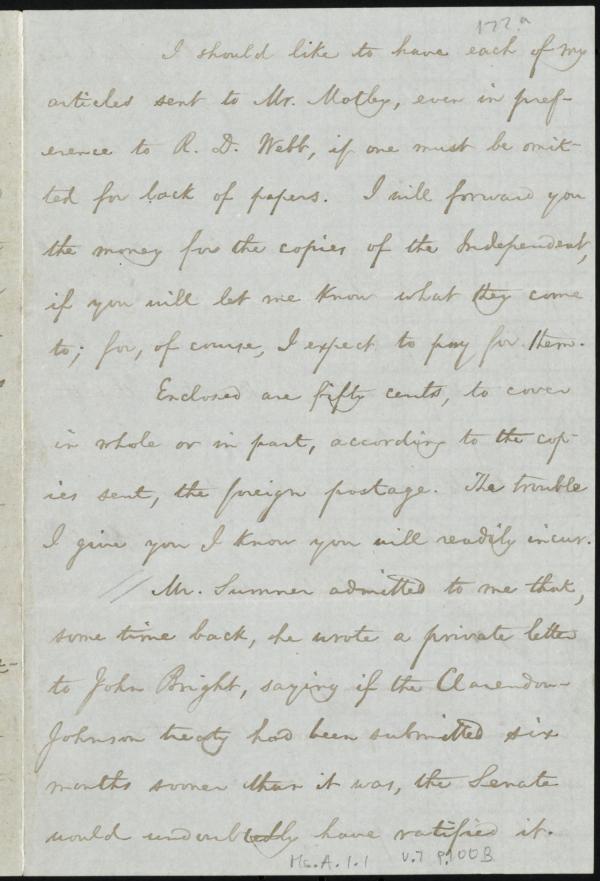 177a
I should like to have each of my
articles sent to Mr. Motley, even in pref-
erence to R. D. Webb, if one must be omit-
ted for lack of papers. I will forward you
the money for the copies of the Independent,
if you will let me know what they come
to; for, of course, I expect to pay for them.
Enclosed are fifty cents, to cover
in whole or in part, according to the cop-
ies sent, the foreign postage. The trouble
I give you I know you will readily incur.
// Mr. Sumner admitted to me that,
some time back, he wrote a private letter
to John Bright, saying if the Clarendon-
Johnson treaty had been submitted six
months sooner than it was, the Senate
would undoubtedly have ratified it.
Ms.A.1.1 v.7 p.100B